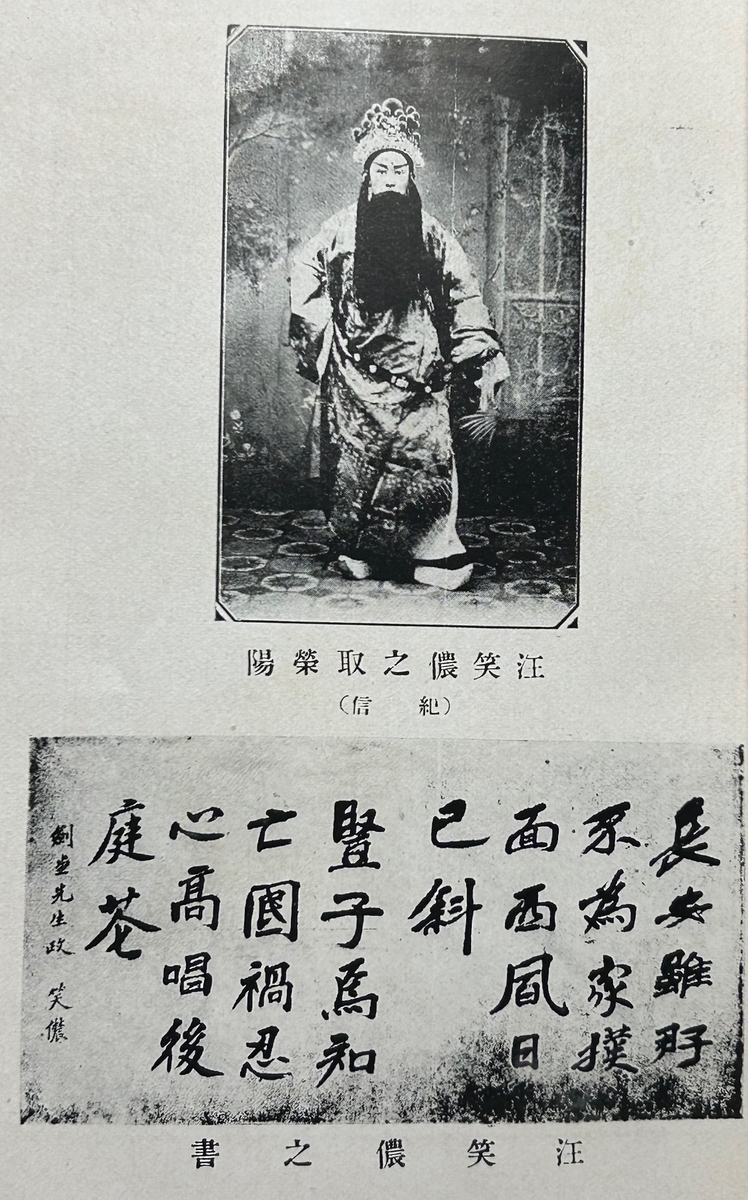 汪笑儂之取榮陽
(紀信)
長安雖好
不為家撲
面西風日
已斜
豎子焉知
亡國禍忍
心高唱後
庭花
劍先生政 笑儂
汪笑儂之書